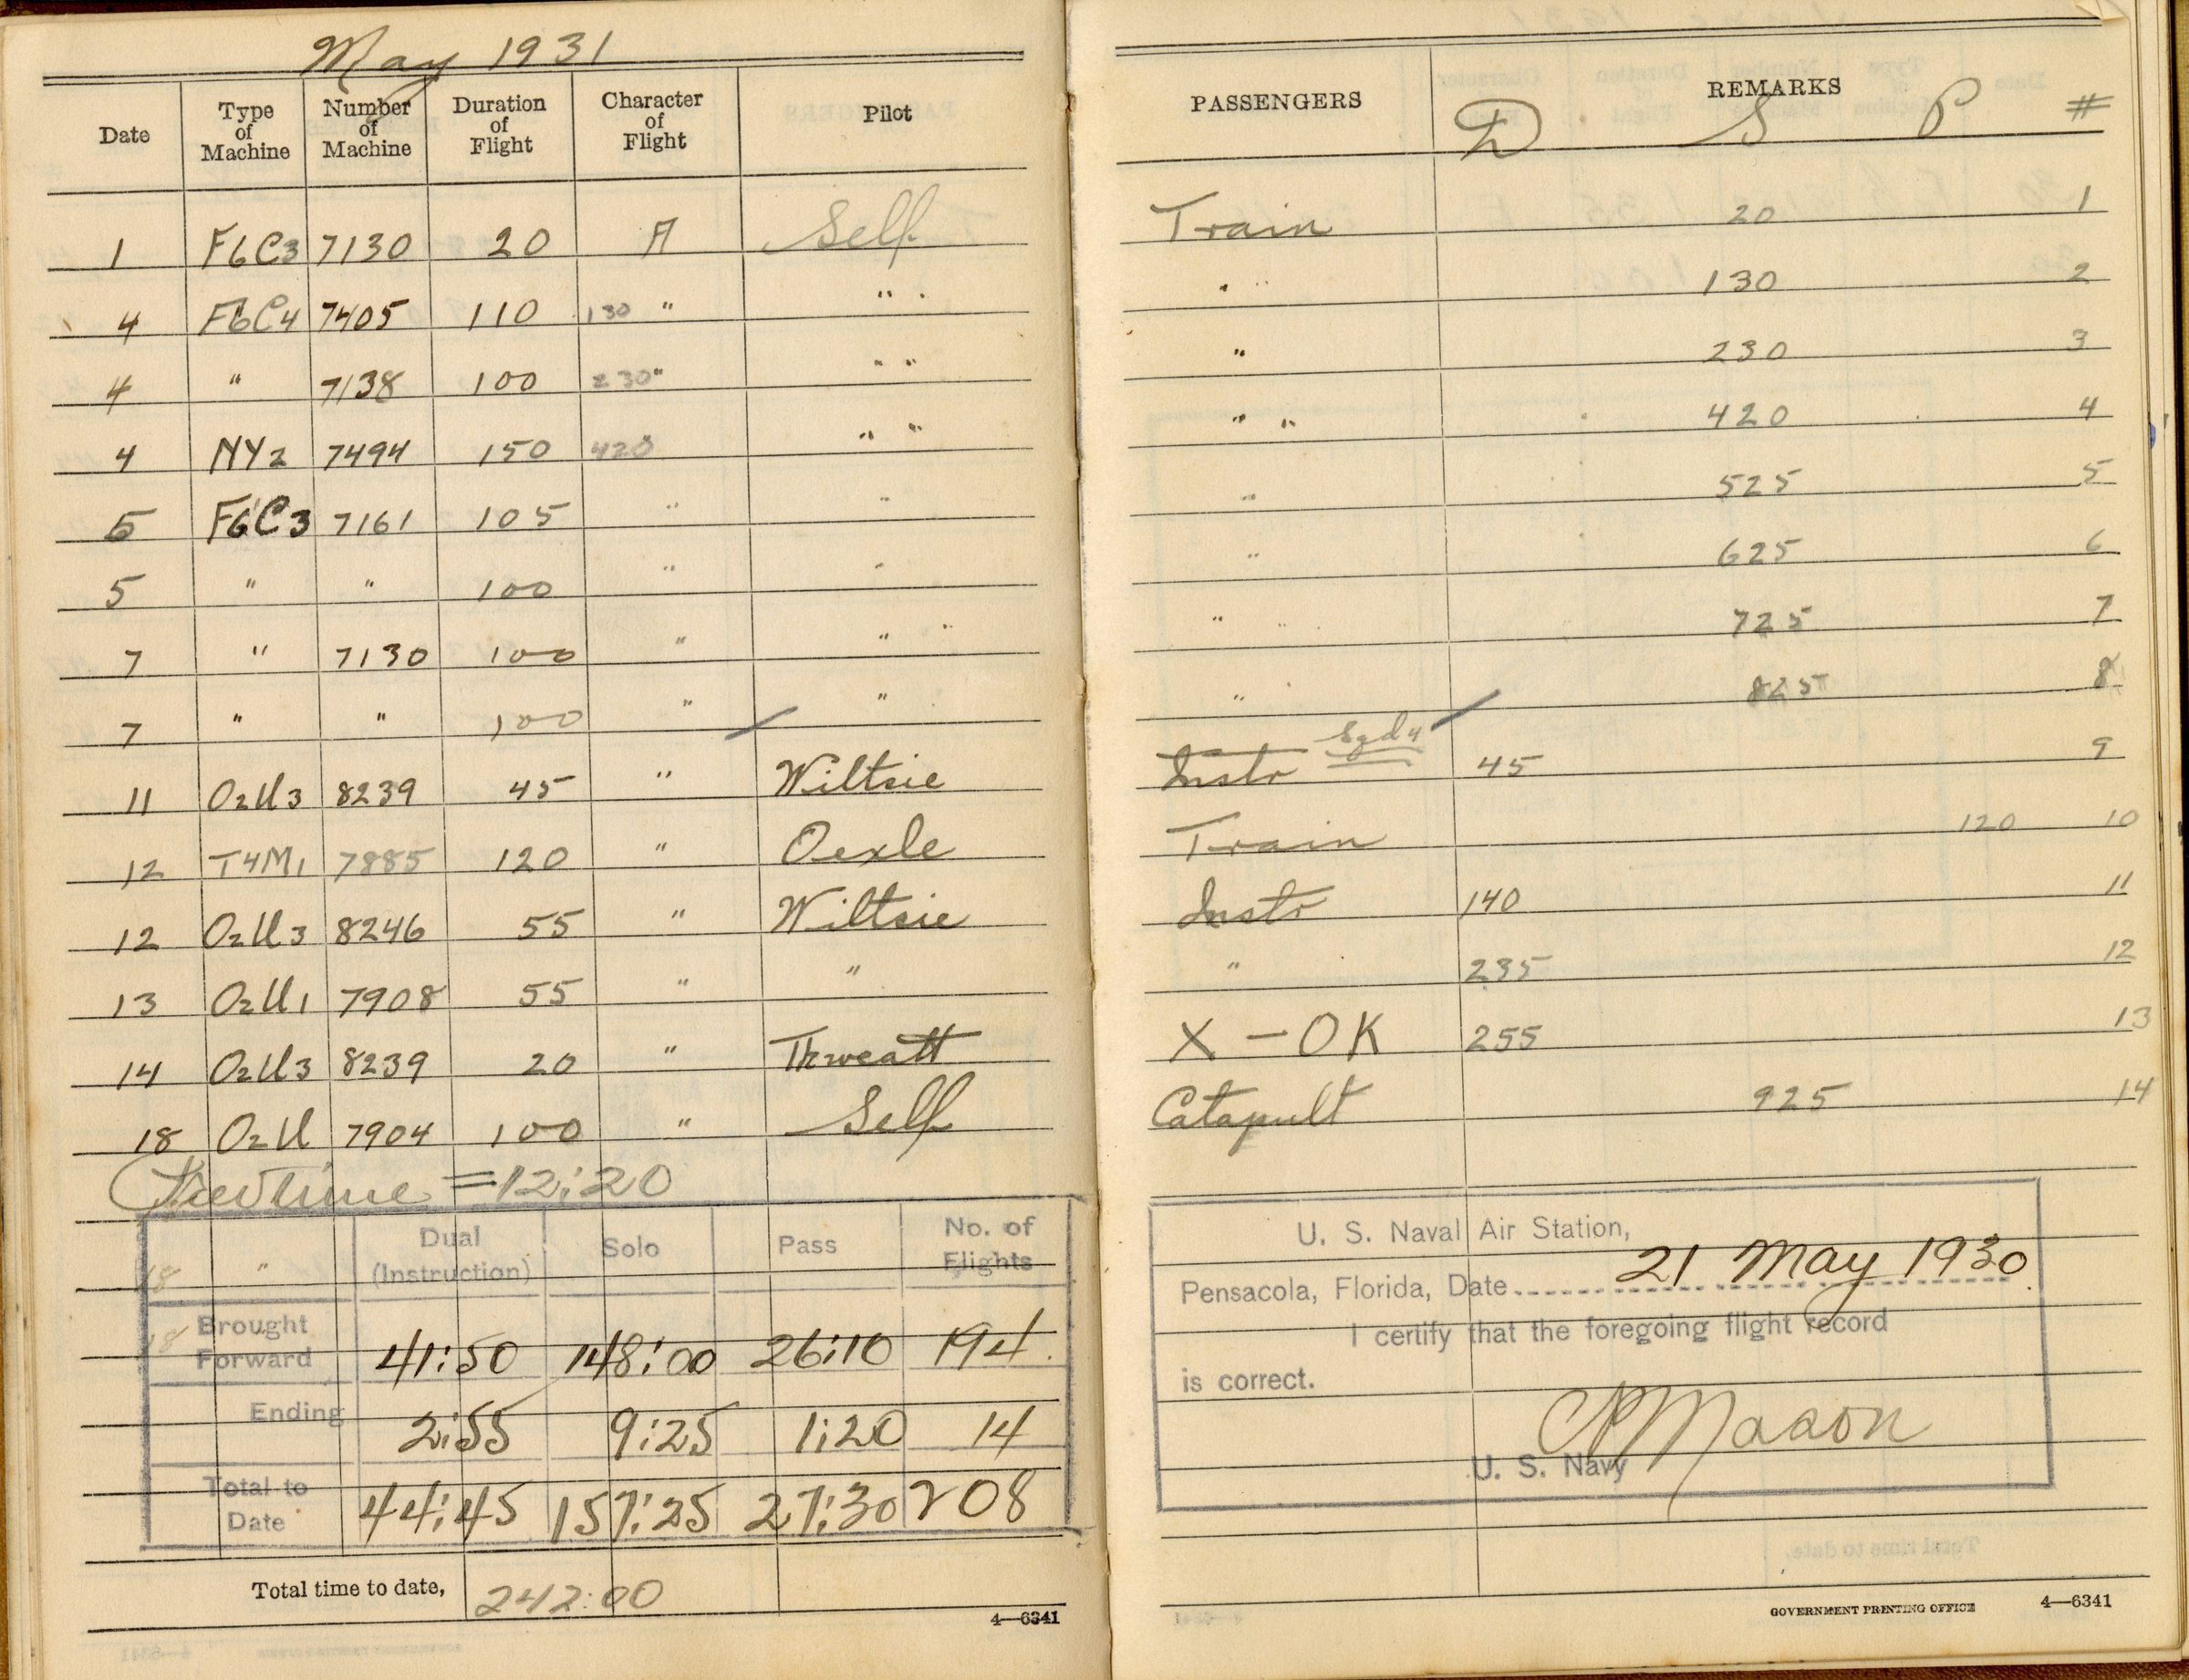 May 1931
Date Type of Machine Number of Machine Duration of Flight Character of Flight Pilot
1 F6C3 7130 20 A Self
4 F6C4 7405 110 130 " " "
4 " 7138 100 230 " " "
4 NY2 7494 150 420 " " "
5 F6C3 7161 105 " "
5 " " 100 " "
7 " 7130 100 " " "
7 " " 100 " "
11 O2U3 8239 45 " Wiltsie
12 T4M1 7885 120 " Oexle
12 O2U3 8246 55 " Wiltsie
13 O2U1 7908 55 " "
14 O2U3 8239 20 " Thweatt
18 O2U 7904 100 " Self
time = 12:20
Dual (Instruction) Solo Pass No. of Flights
18 "
18
Brought Forward 41:50 148:00 26:10 194
Ending 2:55 9:25 1:20 14
Total to Date 44:45 157:25 27:30 208
Total time to date, 242:00
4—6341
PASSENGERS REMARKS
D S P #
Train 20 1
" " 130 2
" 230 3
" " 420 4
" 525 5
" 625 6
" " 725 7
" 825 8
Instr Sqd 4 45 9
Train 120 10
Instr 140 11
" 235 12
X - OK 255 13
Catapult 925 14
U. S. Naval Air Station,
Pensacola, Florida, Date 21 May 1930
I certify that the foregoing flight record
is correct.
CPMason
U. S. Navy
GOVERNMENT PRINTING OFFICE 4—6341